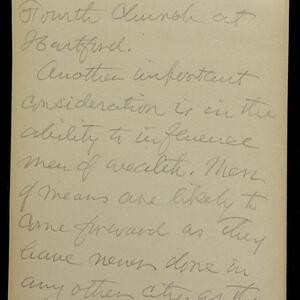 Fourth Church at
Hartford.
Another important
consideration is in the
ability to influence
men of wealth. Men
of means are likely to
come forward as they
have never done in
any other city, as the